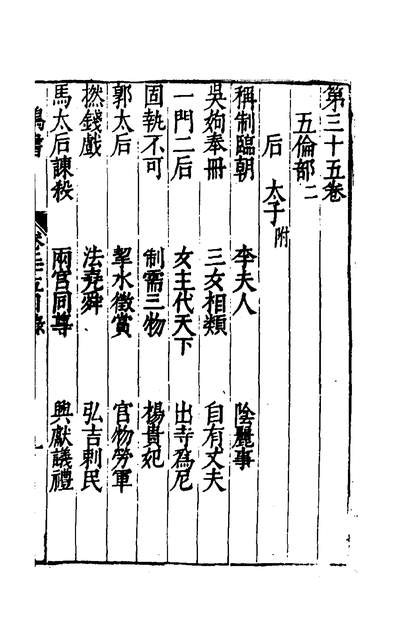 第三十五卷
五倫部二
后 太子附
稱制臨朝 李夫人 陰麗華
吳姁奉冊 三女相類 自有丈夫
一門二后 女主代天下 出寺為尼
固執不可 制需三物 楊貴妃
郭太后 挈水徵賞 官物勞軍
撚錢戲 法堯舜 弘吉剌氏
馬太后諫殺 兩宮同尊 興獻議禮